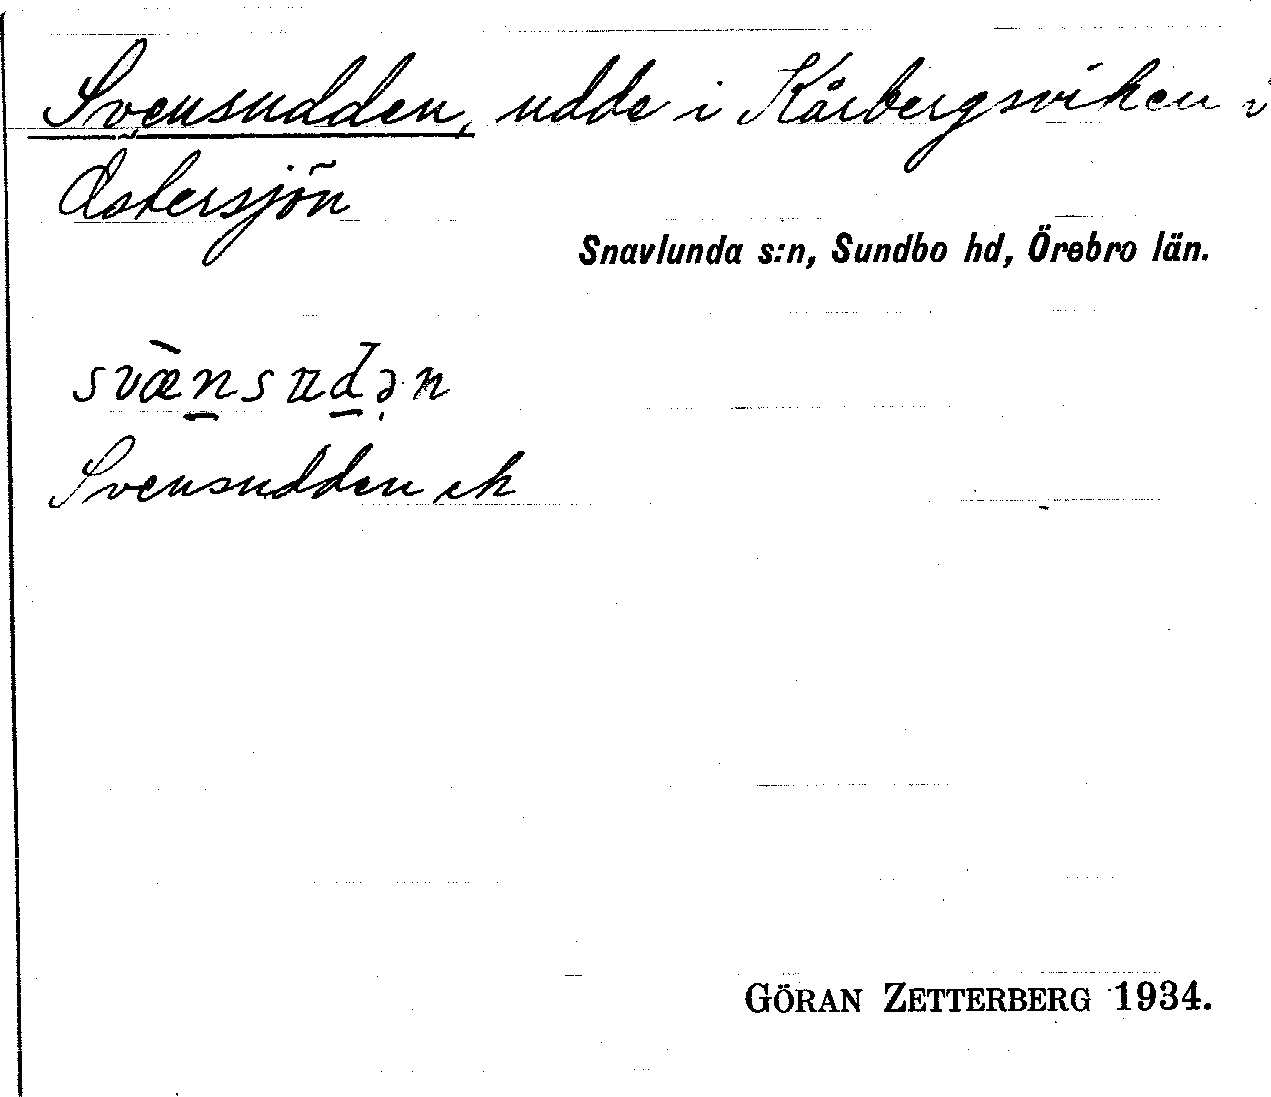 Svensudden, udde i Kårbergsviken i
Åstersjön
Snavlunda s:n, Sundbo hd, Örebro län.
svæ̀nsudən
Svensudden ek
GÖRAN ZETTERBERG 1934.